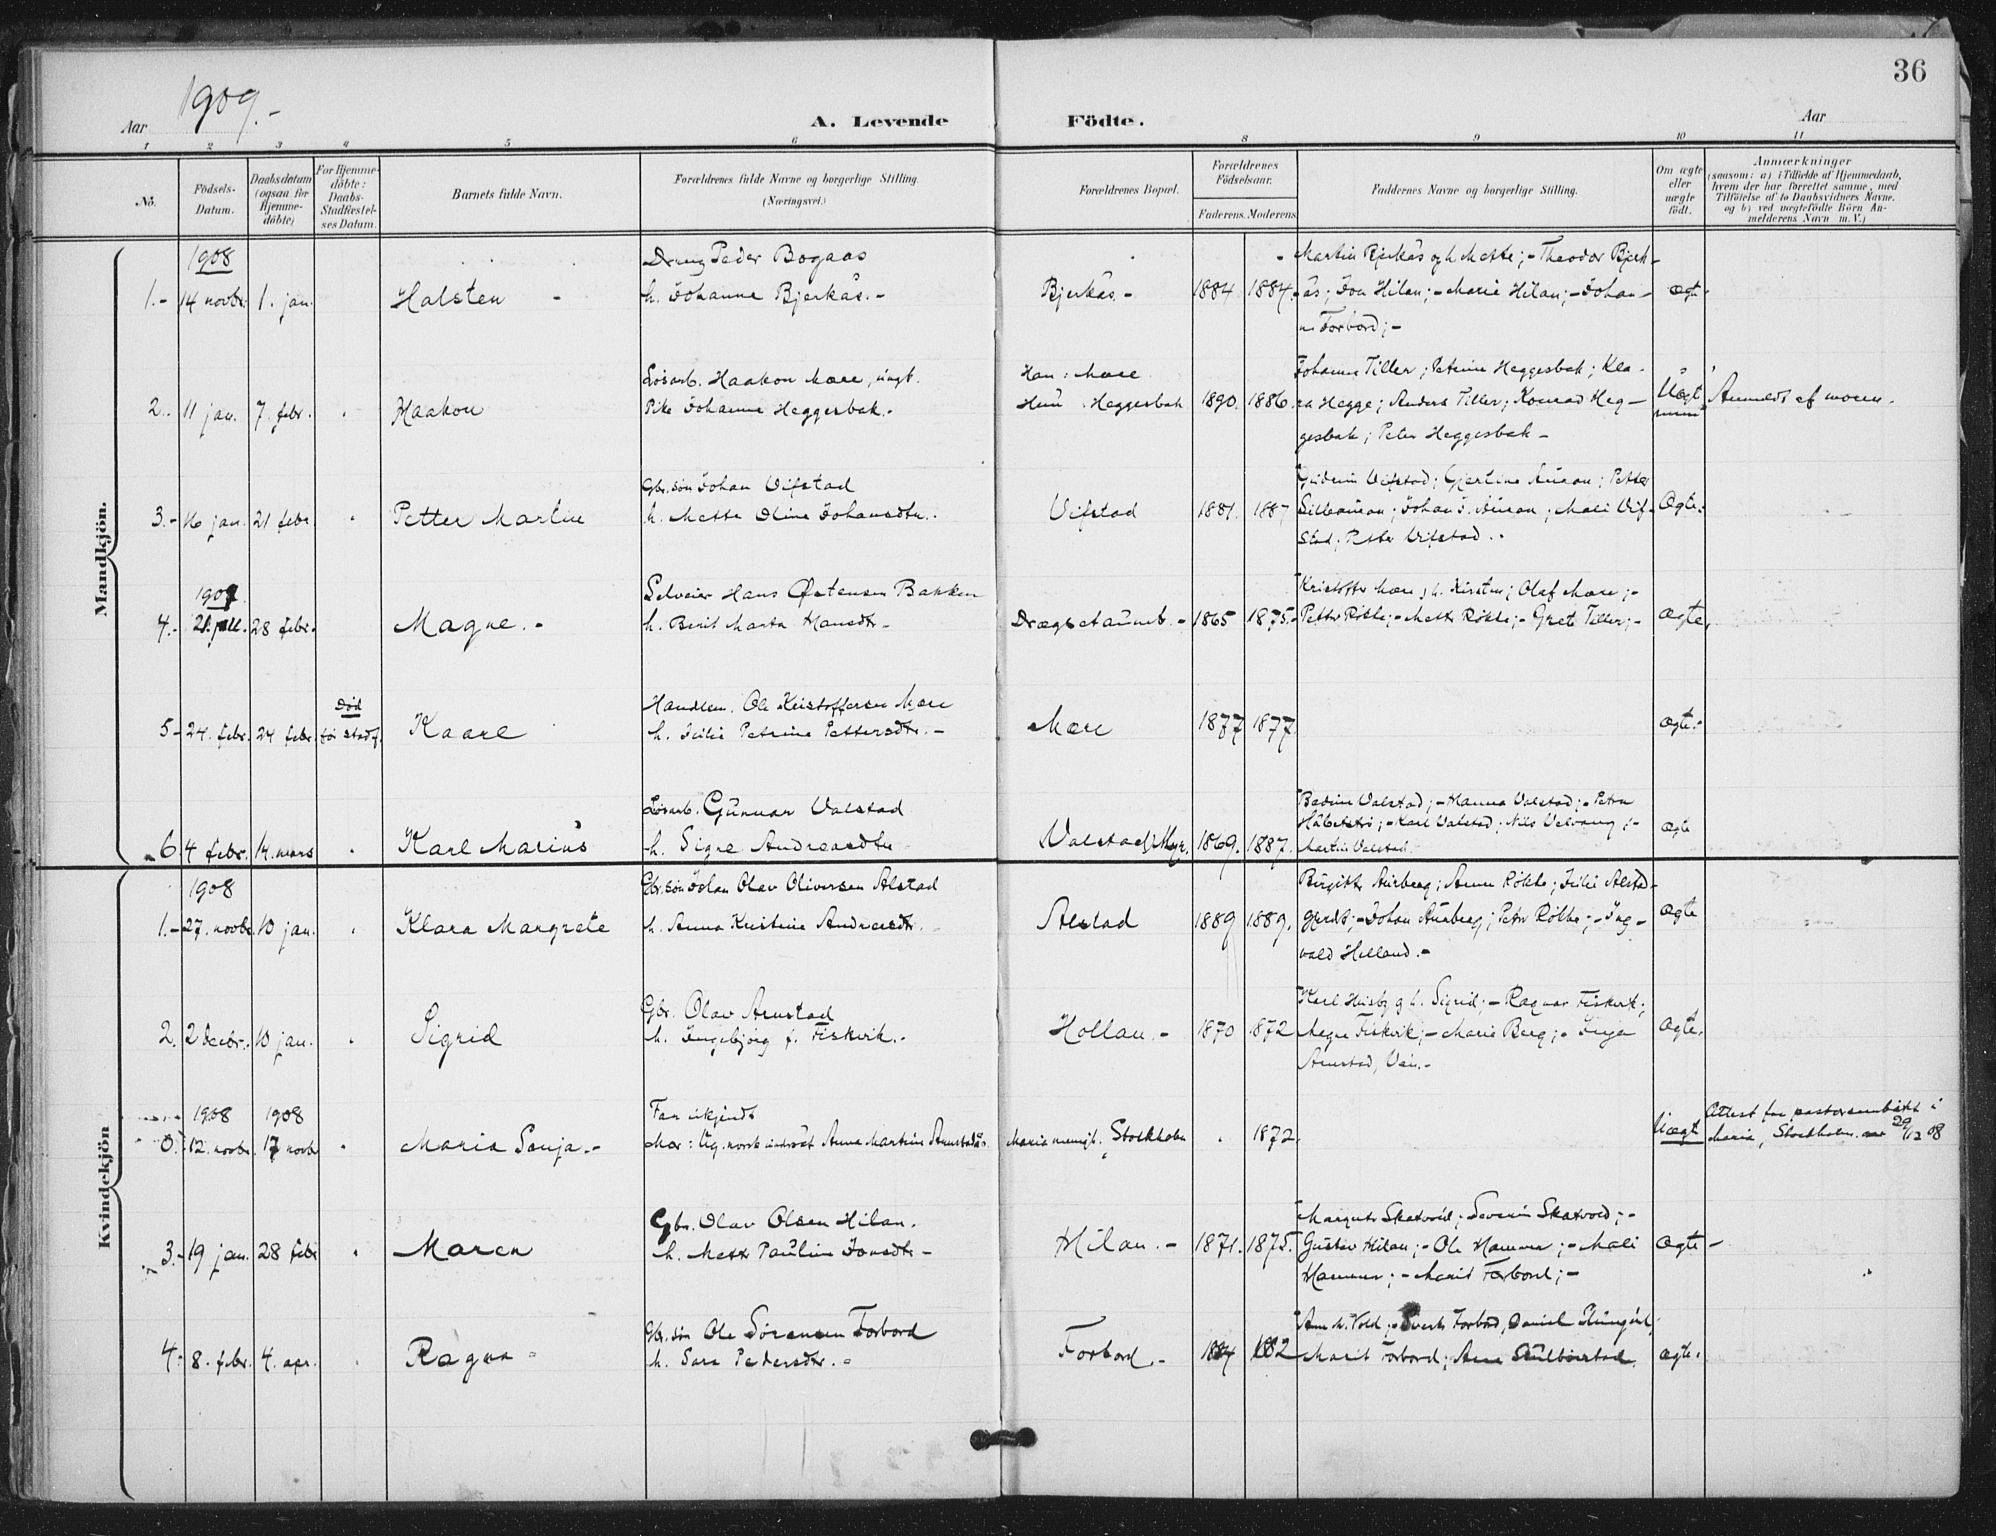 36
Aar 1909.-
A. Levende Födte.
Aar
1 2 3 4 5 6 8 9 10 11
No.
Födsels-Datum.
Daabsdatum (ogsaa for Hjemme-döbte)
For Hjemme-döbte: Daabs-Stadfæstel-ses Datum.
Barnets fulde Navn.
Forældrenes fulde Navne og borgerlige Stilling. (Næringsvei.)
Forældrenes Bopæl.
Forældrenes Födselsaar.
Faderens. Moderens.
Faddernes Navne og borgerlige Stilling.
Om ægte eller uægte födt.
Anmærkninger
(saasom: a) i Tilfælde af Hjemmedaab,
hvem der har forrettet samme, med
Tilföielse af to Daabsvidners Navne.
og b) ved uægtefödte Börn An-
melderens Navn m. V.)
Mandkjön.
1908
1.- 14 novbr. 1. jan. Halsten -
Dreng Peder Bogaas
h. Johanne Bjerkås.-
Bjerkås.- 1884 1884.
Martin Bjerkås og h. Mette;- Theodor Bjerk-
ås; Jon Hilan;- Marie Hilan;- Johan-
Forbord;-
ægte
2. 11 jan. 7. febr. Haakon
Løsarb. Haakon Mære, ungk.
Pike Johanna Heggesbak.-
Han: Mære
Hun: Heggesbak 1890. 1886.
Johanna Tiller; Petrine Heggesbak; Kla-
ra Hegge; Anders Tiller; Konrad Heg-
gesbak; Peter Heggesbak-
Uægt
Anmeldt af moren.
3.- 16 jan. 21 febr. Petter Martin
Gbr.søn Johan Vifstad
h. Mette Oline Johansdtr.
Vifstad 1881. 1887
Gudrun Vifstad; Gjertine Auran; Petter
Johan J. Auran; Mali Vif-
stad; Petter Vifstad.
Ægte.
1907
4.- 21. 28 febr. Magne.-
Selveier Hans Østensen Bakken
h. Berit Marta Hansdtr-
1865 1875.
Kristoffer Mære; h. Kirsten; Olaf Mære;-
Petter Røkke;- Mette Røkke;- Gret Tiller;-
ægte.
5- 24. febr. 24 febr. Død før stadf. Kaare
Handlem. Ole Kristoffersen Mære
h. Julie Petrine Pettersdtr.-
Mære 1877 1877.
ægte.
6. 4 febr. 14. mars Karl Marius
Løsarb. Gunnar Valstad
h. Signe Andreasdtr
Valstad, Myr. 1869. 1887.
Valstad;- Hanna Valstad;- Petra
Karl Valstad; Nils Velvang;-
Martin Valstad.
ægte
Kvindekjön
1908
1.- 27. novbr. 10 jan. Klara Margrete
Gbr.søn Johan Olav Oliversen Alstad
h. Anna Kristine Andreasdtr.
Alstad 1889 1889.
Birgitte Aurberg; Anna Røkke; Julie Alstad-
gjerdt;- Johan Aurberg; Petr Røkke;- Ing-
vald Helland.-
ægte
2. 2 decbr. 10 jan. Sigrid
Gbr. Olav Arnstad
h. Ingebjørg f. Fiskvik.-
Hollan.- 1870 1872
Karl Huseby og h. Sigrid;- Ragnar Fiskvik;
Fiskvik;- Marie Berg;- Inga
Arnstad,
ægte.
1908 1908
0. 12. novbr. 17 novbr Maria Sonja.-
Far ukjendt
Mor: Ug. norsk undersåt Anna Martine Arnstad
Maria menigh. Stockholm 1872.
Uægt
Attest fra pastorsembätet i
Maria, Stockholm 29/12 08
3.- 19 jan. 28 febr Maren
Gbr. Olav Olsen Hilan.
h. Mette Pauline Jonsdtr-
Hilan.- 1871. 1875.
Margrete Skatvold; Severin Skatvold;-
Gustav Hilan;- Ole Hammer;- Mali
Hammer;- Marit Forbord;-
ægte-
4. 8. febr. 4. apr. Ragna
Gbr.søn Ole Sørensen Forbord
h. Sara Pedersdtr.
Forbord.- 1884 1882
Vold; Sivert Forbord, Daniel
Marit Forbord;
ægte.